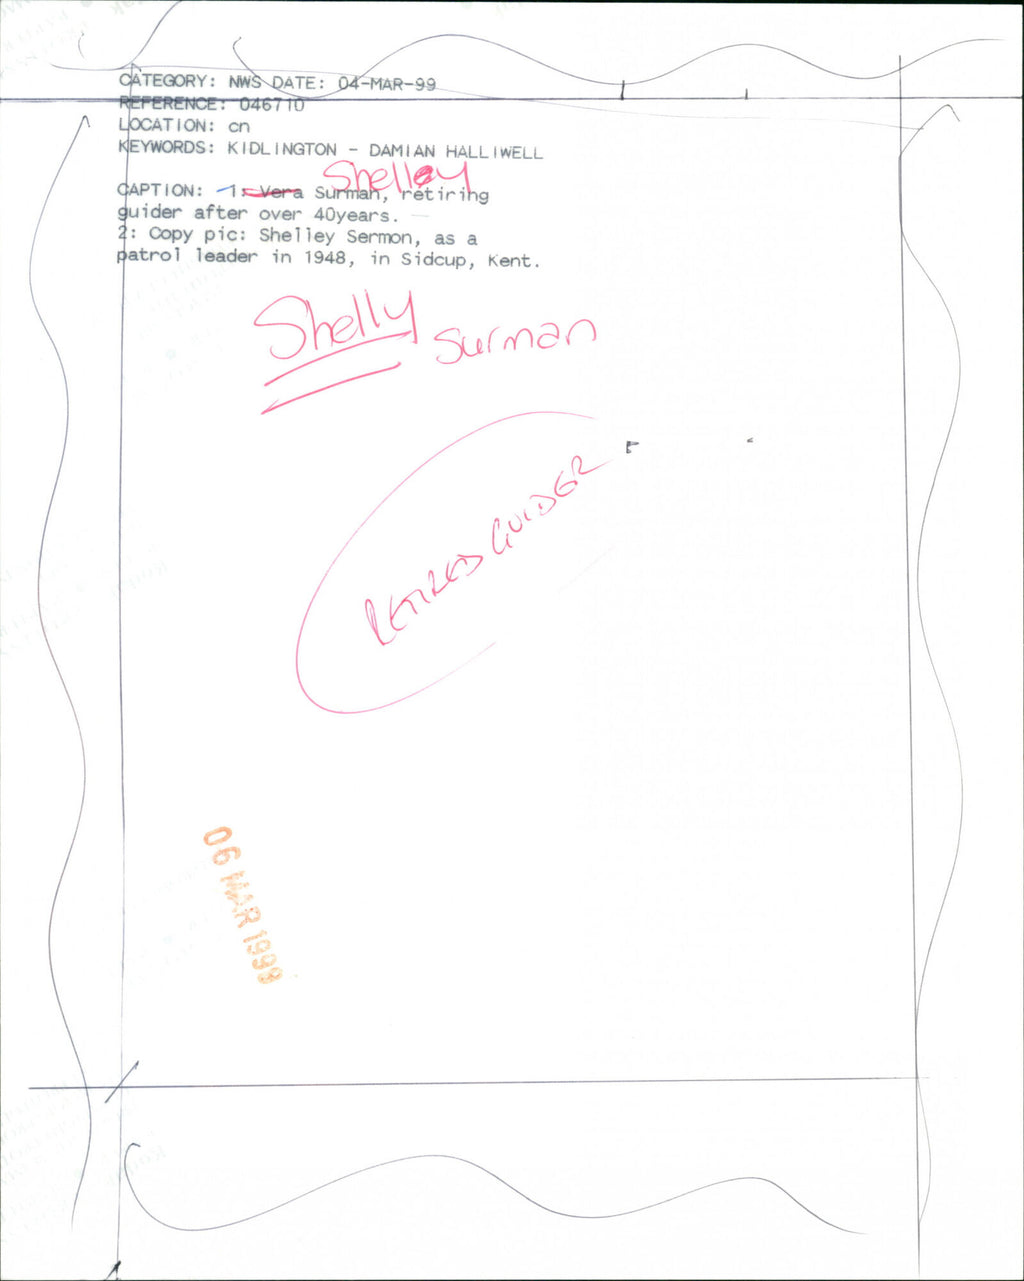 CATEGORY: NWS DATE: 04-MAR-99
REFERENCE: 046710
LOCATION: cn
KEYWORDS: KIDLINGTON - DAMIAN HALLIWELL
Shelley
CAPTION: 1: Vera Surman, retiring
guider after over 40years.
2: Copy pic: Shelley Sermon, as a
patrol leader in 1948, in Sidcup, Kent.
Shelly
Surman
RETIRED GUIDER
06 MAR 1999